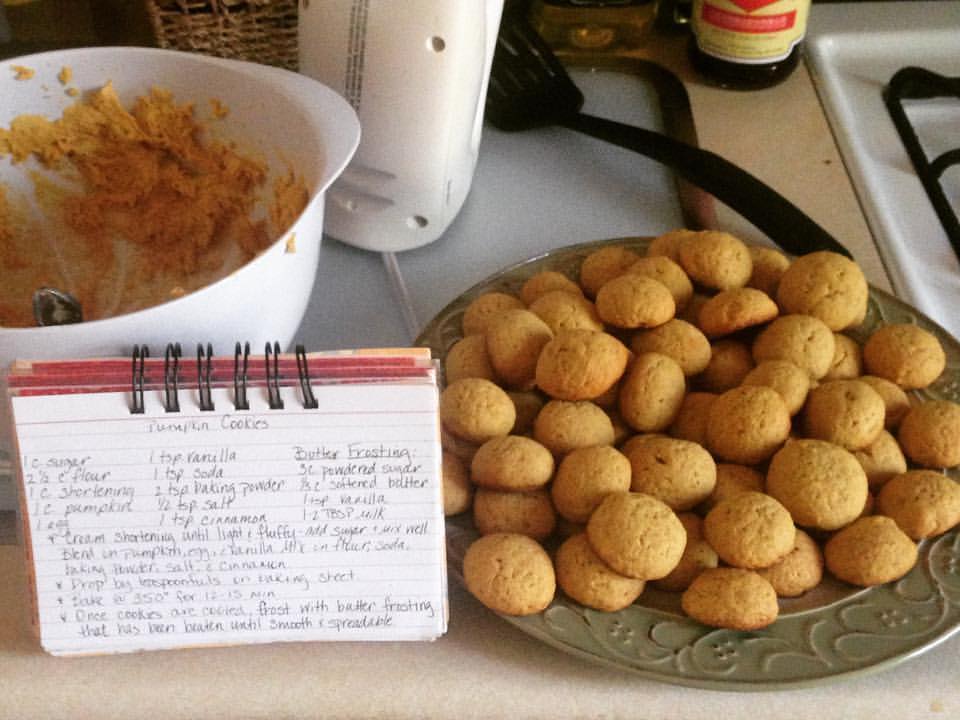 Pumpkin Cookies
1 c sugar
2 ½ c flour
1 c shortening
1 c pumpkin
1 egg
1 tsp vanilla
1 tsp soda
2 tsp baking powder
½ tsp salt
1 tsp cinnamon
Butter Frosting:
3c powdered sugar
⅓ c softened butter
1 tsp vanilla
1-2 TBSP milk
* Cream shortening until light & fluffy-add sugar + mix well.
Blend in pumpkin, egg, & vanilla. Mix in flour, soda,
baking powder, salt, & cinnamon
* Drop by teaspoonfuls on baking sheet.
* Bake @ 350° for 12-15 min.
* Once cookies are cooled, frost with butter frosting
that has been beaten until smooth & spreadable.